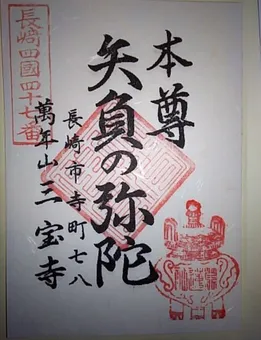 本尊
矢負の弥陀
長崎市寺町七八
萬年山三宝寺
長崎四國四十七番